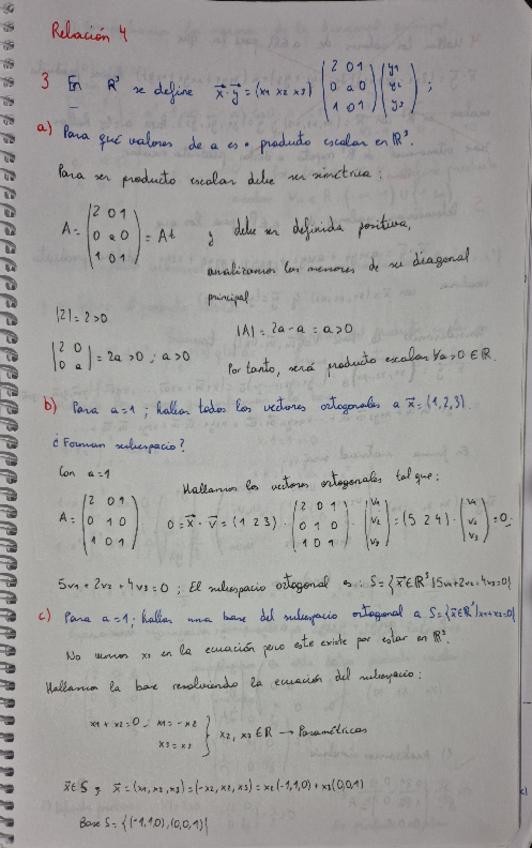 Relación 4
3 En R³ se define x⃗·y⃗ = (x1 x2 x3) (2 0 1 / 0 a 0 / 1 0 1) (y1 / y2 / y3) ;
a) Para qué valores de a es • producto escalar en R³.
Para ser producto escalar debe ser simétrica :
A = (2 0 1 / 0 a 0 / 1 0 1) = At y debe ser definida positiva,
analizamos los menores de su diagonal
principal
|2| = 2 > 0
|A| = 2a - a = a > 0
|2 0 / 0 a| = 2a > 0 ; a > 0
Por tanto, será producto escalar ∀a > 0 ∈ R.
b) Para a=1 ; hallar todos los vectores ortogonales a x⃗ = (1,2,3).
¿Forman subespacio?
Con a=1
Hallamos los vectores ortogonales tal que :
A = (2 0 1 / 0 1 0 / 1 0 1) 0 = x⃗ · v⃗ = (1 2 3) · (2 0 1 / 0 1 0 / 1 0 1) · (v1 / v2 / v3) = (5 2 4) · (v1 / v2 / v3) = 0.
5v1 + 2v2 + 4v3 = 0 ; El subespacio ortogonal es : S = {x⃗ ∈ R³ | 5v1 + 2v2 + 4v3 = 0}
c) Para a=1 ; hallar una base del subespacio ortogonal a S = {x⃗ ∈ R³ | x1 + x2 = 0}
No vemos x3 en la ecuación pero este existe por estar en R³.
Hallamos la base resolviendo la ecuación del subespacio :
x1 + x2 = 0 → x1 = -x2
x3 = x3 } x2, x3 ∈ R → Paramétricas
x⃗ ∈ S ; x⃗ = (x1, x2, x3) = (-x2, x2, x3) = x2 (-1,1,0) + x3 (0,0,1)
Base S = {(-1,1,0), (0,0,1)}